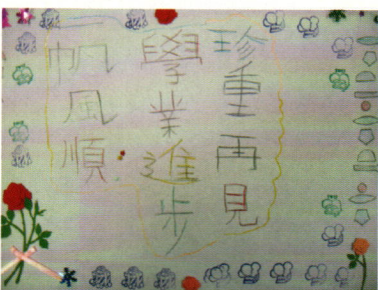 珍重再見
學業進步
一帆風順